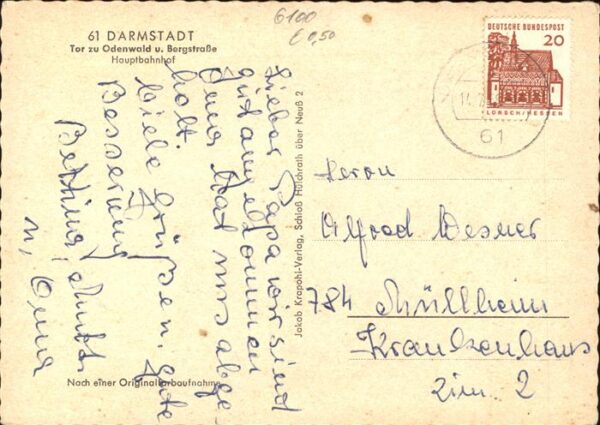 61 DARMSTADT
Tor zu Odenwald u. Bergstraße
Hauptbahnhof
6100
€ 0,50
DEUTSCHE BUNDESPOST
20
LORSCH/HESSEN
61
Lieber Papa wir sind
gut angekommen
Oma hat uns abge
holt.
Viele Grüße u. gute
Besserung
Bettina, Mutti
u, Oma
Jakob Krapohl-Verlag, Schloß Hülchrath über Neuß 2
Herrn
Alfred Wesner
784 Müllheim
Krankenhaus
Zim. 2
Nach einer Originalfarbaufnahme